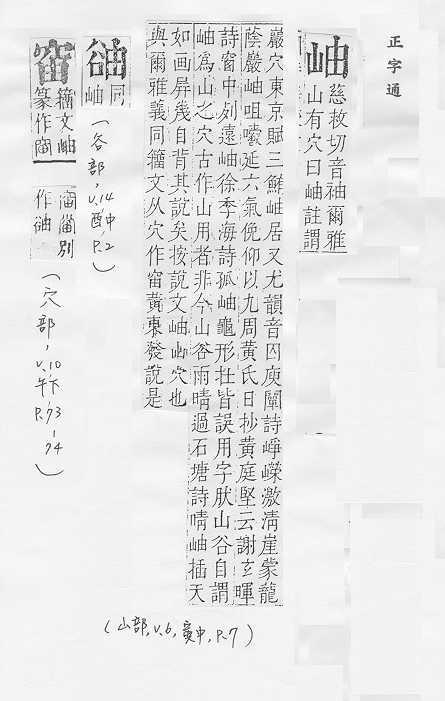 正字通
岫
慈救切音袖爾雅
山有穴曰岫註謂
巖穴東京賦三鮪岫居又尤韻音囚庾闡詩崢嶸激清崖蒙龍
蔭巖岫咀嚼延六氣俛仰以九周黃氏日抄黃庭堅云謝玄暉
詩窗中列遠岫徐季海詩孤岫龜形在皆誤用字肰山谷自謂
岫爲山之穴古作山用者非今山谷雨晴過石塘詩晴岫插天
如画屛幾自背其說矣按說文岫山穴也
與爾雅義同籀文从穴作宙黃東發說是
同
岫
(谷部,v.14酉中,P.2)
籀文岫
篆作
別
作
(穴部,v.10午下,P.93-94)
(山部,v.6,寅中,P.7)